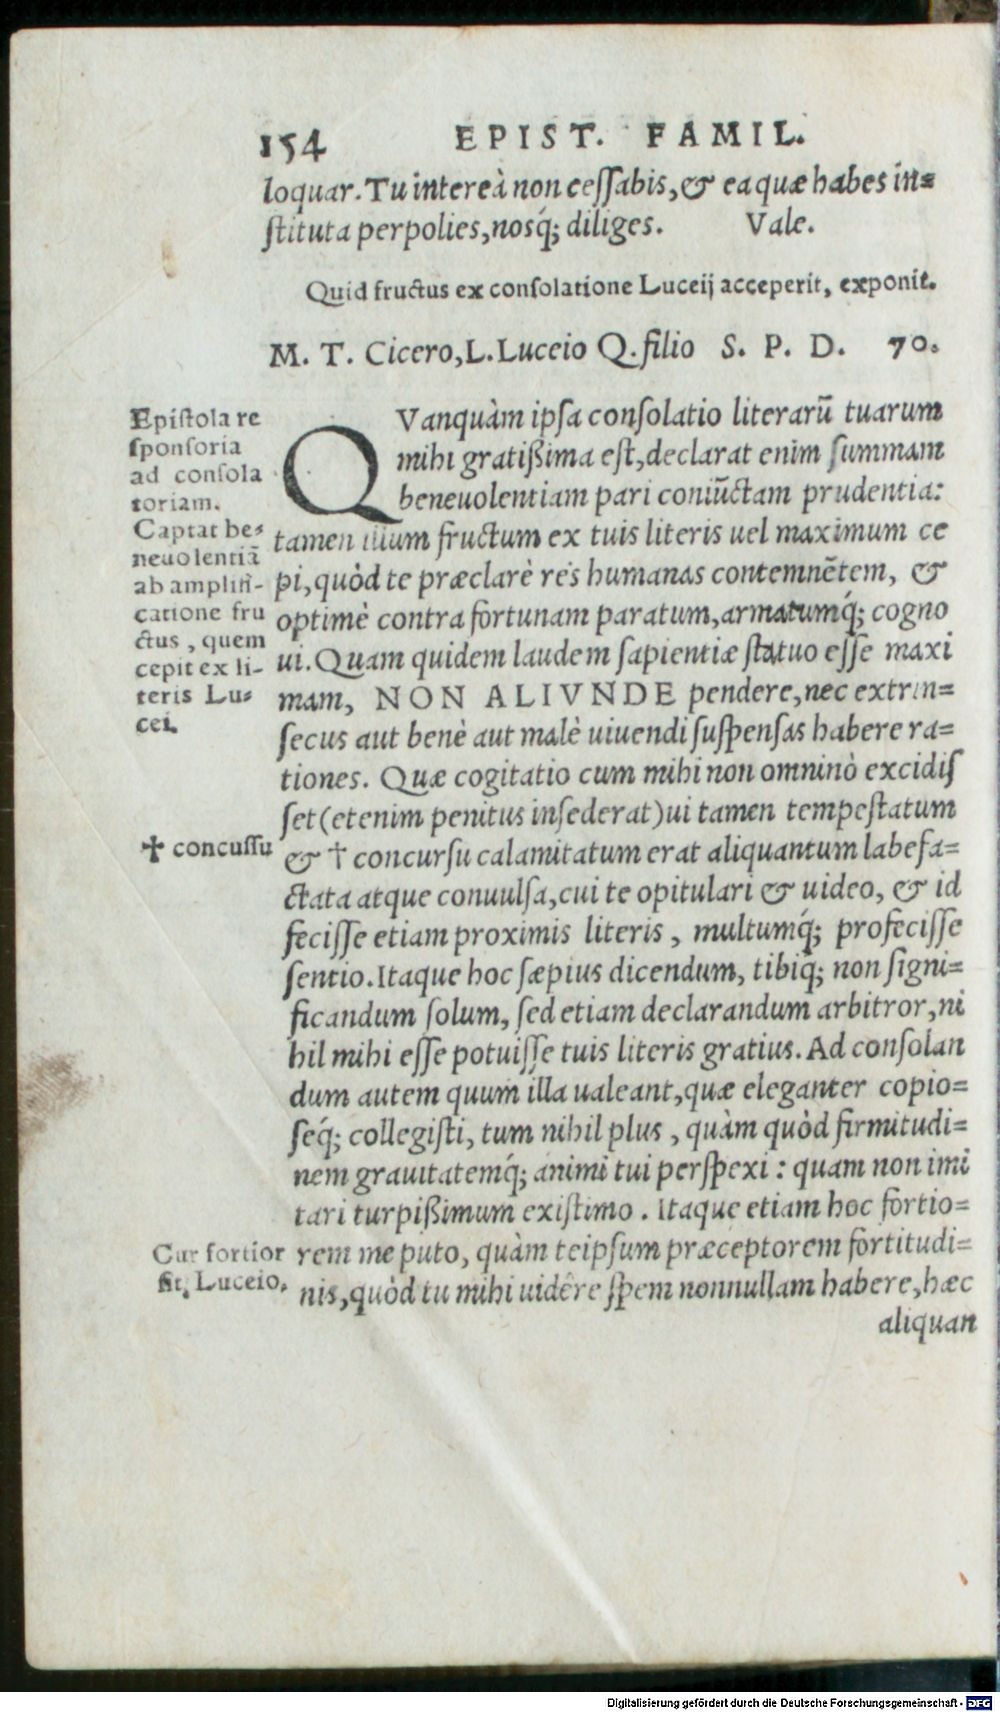 154 EPIST. FAMIL.
loquar. Tu intereà non cessabis, & ea quæ habes in=
stituta perpolies, nosq́; diliges. Vale.
Quid fructus ex consolatione Luceij acceperit, exponit.
M. T. Cicero, L. Luceio Q. filio S. P. D. 70.
Epistola re
sponsoria
ad consola
toriam.
Captat be=
neuolentiã
ab amplifi-
catione fru
ctus, quem
cepit ex li-
teris Lu=
cei.
QVanquàm ipsa consolatio literarũ tuarum
mihi gratißima est, declarat enim summam
beneuolentiam pari coniũctam prudentia:
tamen illum fructum ex tuis literis uel maximum ce
pi, quòd te præclarè res humanas contemnẽtem, &
optimè contra fortunam paratum, armatumq́; cogno
ui. Quam quidem laudem sapientiæ statuo esse maxi
mam, NON ALIVNDE pendere, nec extrin=
secus aut benè aut malè uiuendi suspensas habere ra=
tiones. Quæ cogitatio cum mihi non omninò excidis
set (etenim penitus insederat) ui tamen tempestatum
✝ concussu
& † concursu calamitatum erat aliquantum labefa=
ctata atque conuulsa, cui te opitulari & uideo, & id
fecisse etiam proximis literis, multumq́; profecisse
sentio. Itaque hoc sæpius dicendum, tibiq́; non signi=
ficandum solum, sed etiam declarandum arbitror, ni
hil mihi esse potuisse tuis literis gratius. Ad consolan
dum autem quum illa ualeant, quæ eleganter copio=
seq́; collegisti, tum nihil plus, quàm quòd firmitudi=
nem grauitatemq́; animi tui perspexi: quam non imi
tari turpißimum existimo. Itaque etiam hoc fortio=
Cur fortior
sit, Luceio.
rem me puto, quàm teipsum præceptorem fortitudi=
nis, quòd tu mihi uidêre spem nonnullam habere, hæc
aliquan
Digitalisierung gefördert durch die Deutsche Forschungsgemeinschaft - DFG